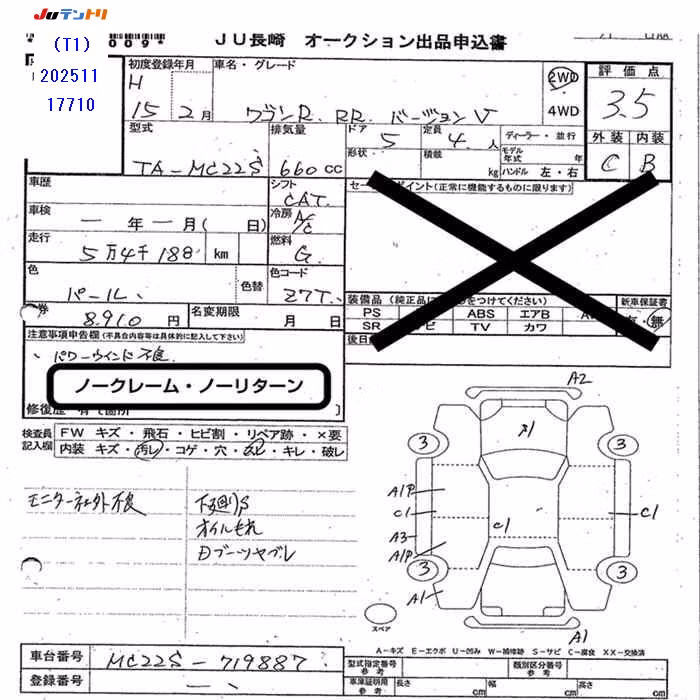 JUテントリ
009*
JU長崎 オークション出品申込書
(T1)
202511
17710
初度登録年月 車名・グレード 2WD 4WD 評価点
H 15年 2月 ワゴンR. RR. バージョンV 3.5
型式 排気量 ドア 5 定員 4.人 ディーラー・並行 外装 内装
形状 積載 kg モデル年式 年 ハンドル 左・右
TA-MC22S 660cc C B
車歴 シフト CAT. セールスポイント(正常に機能するものに限ります)
車検 一年一月( 日) 冷房 A/C
走行 5万4千188 km 燃料 G.
色 パール、 色替 色コード Z7T.
券 8.910円 名変期限 月 日
装備品(純正品に をつけてください) 新車保証書
PS ABS エアB 有・無
SR ナビ TV カワ
後日
注意事項申告欄(不具合内容等は具体的に記入して下さい)
、パワーウインド不良
ノークレーム・ノーリターン
修復歴 有で箇所
検査員記入欄 FW キズ・飛石・ヒビ割・リペア跡・×要
内装 キズ・汚レ・コゲ・穴・スレ・キレ・破レ
モニター社外不良 下廻りS
オイルもれ
Dブーツヤブレ
A2
3 3
A1P
C1 C1 C1
A3
A1P
3 3
A1
A1
スペア
A-キズ E-エクボ U-凹み W-補修跡 S-サビ C-腐食 XX-交換済
車台番号 MC22S-719887
登録番号 一、
型式指定番号 参考 類別区分番号 参考
車庫証明用 参考 長さ cm 幅 cm 高さ cm